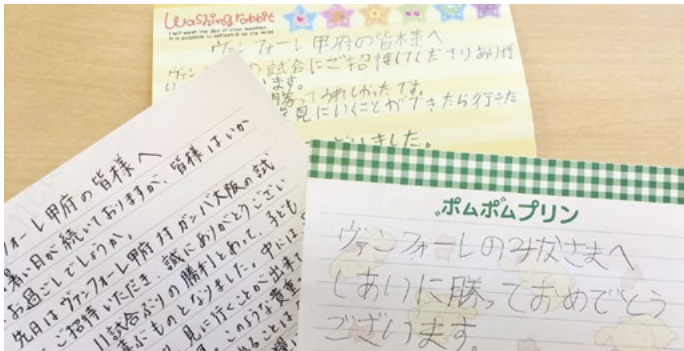 Washing rabbit
ヴァンフォーレ甲府の皆様へ
の試合にご招待してくださりあり
います。
勝ってうれしかったです。
見にいくことができたら行きた
ました。
フォーレ甲府の皆様へ
暑い日が続いておりますが、皆様はいか
お過ごしでしょうか。
先日はヴァンフォーレ甲府対ガンバ大阪の試
ご招待いただき、誠にありがとうござい
11試合ぶりの勝利とあって、子ども
喜ぶものとなりました。中には
見に行くことが出来て
このような貴重
ポムポムプリン
ヴァンフォーレのみなさまへ
しあいに勝っておめでとう
ございます。